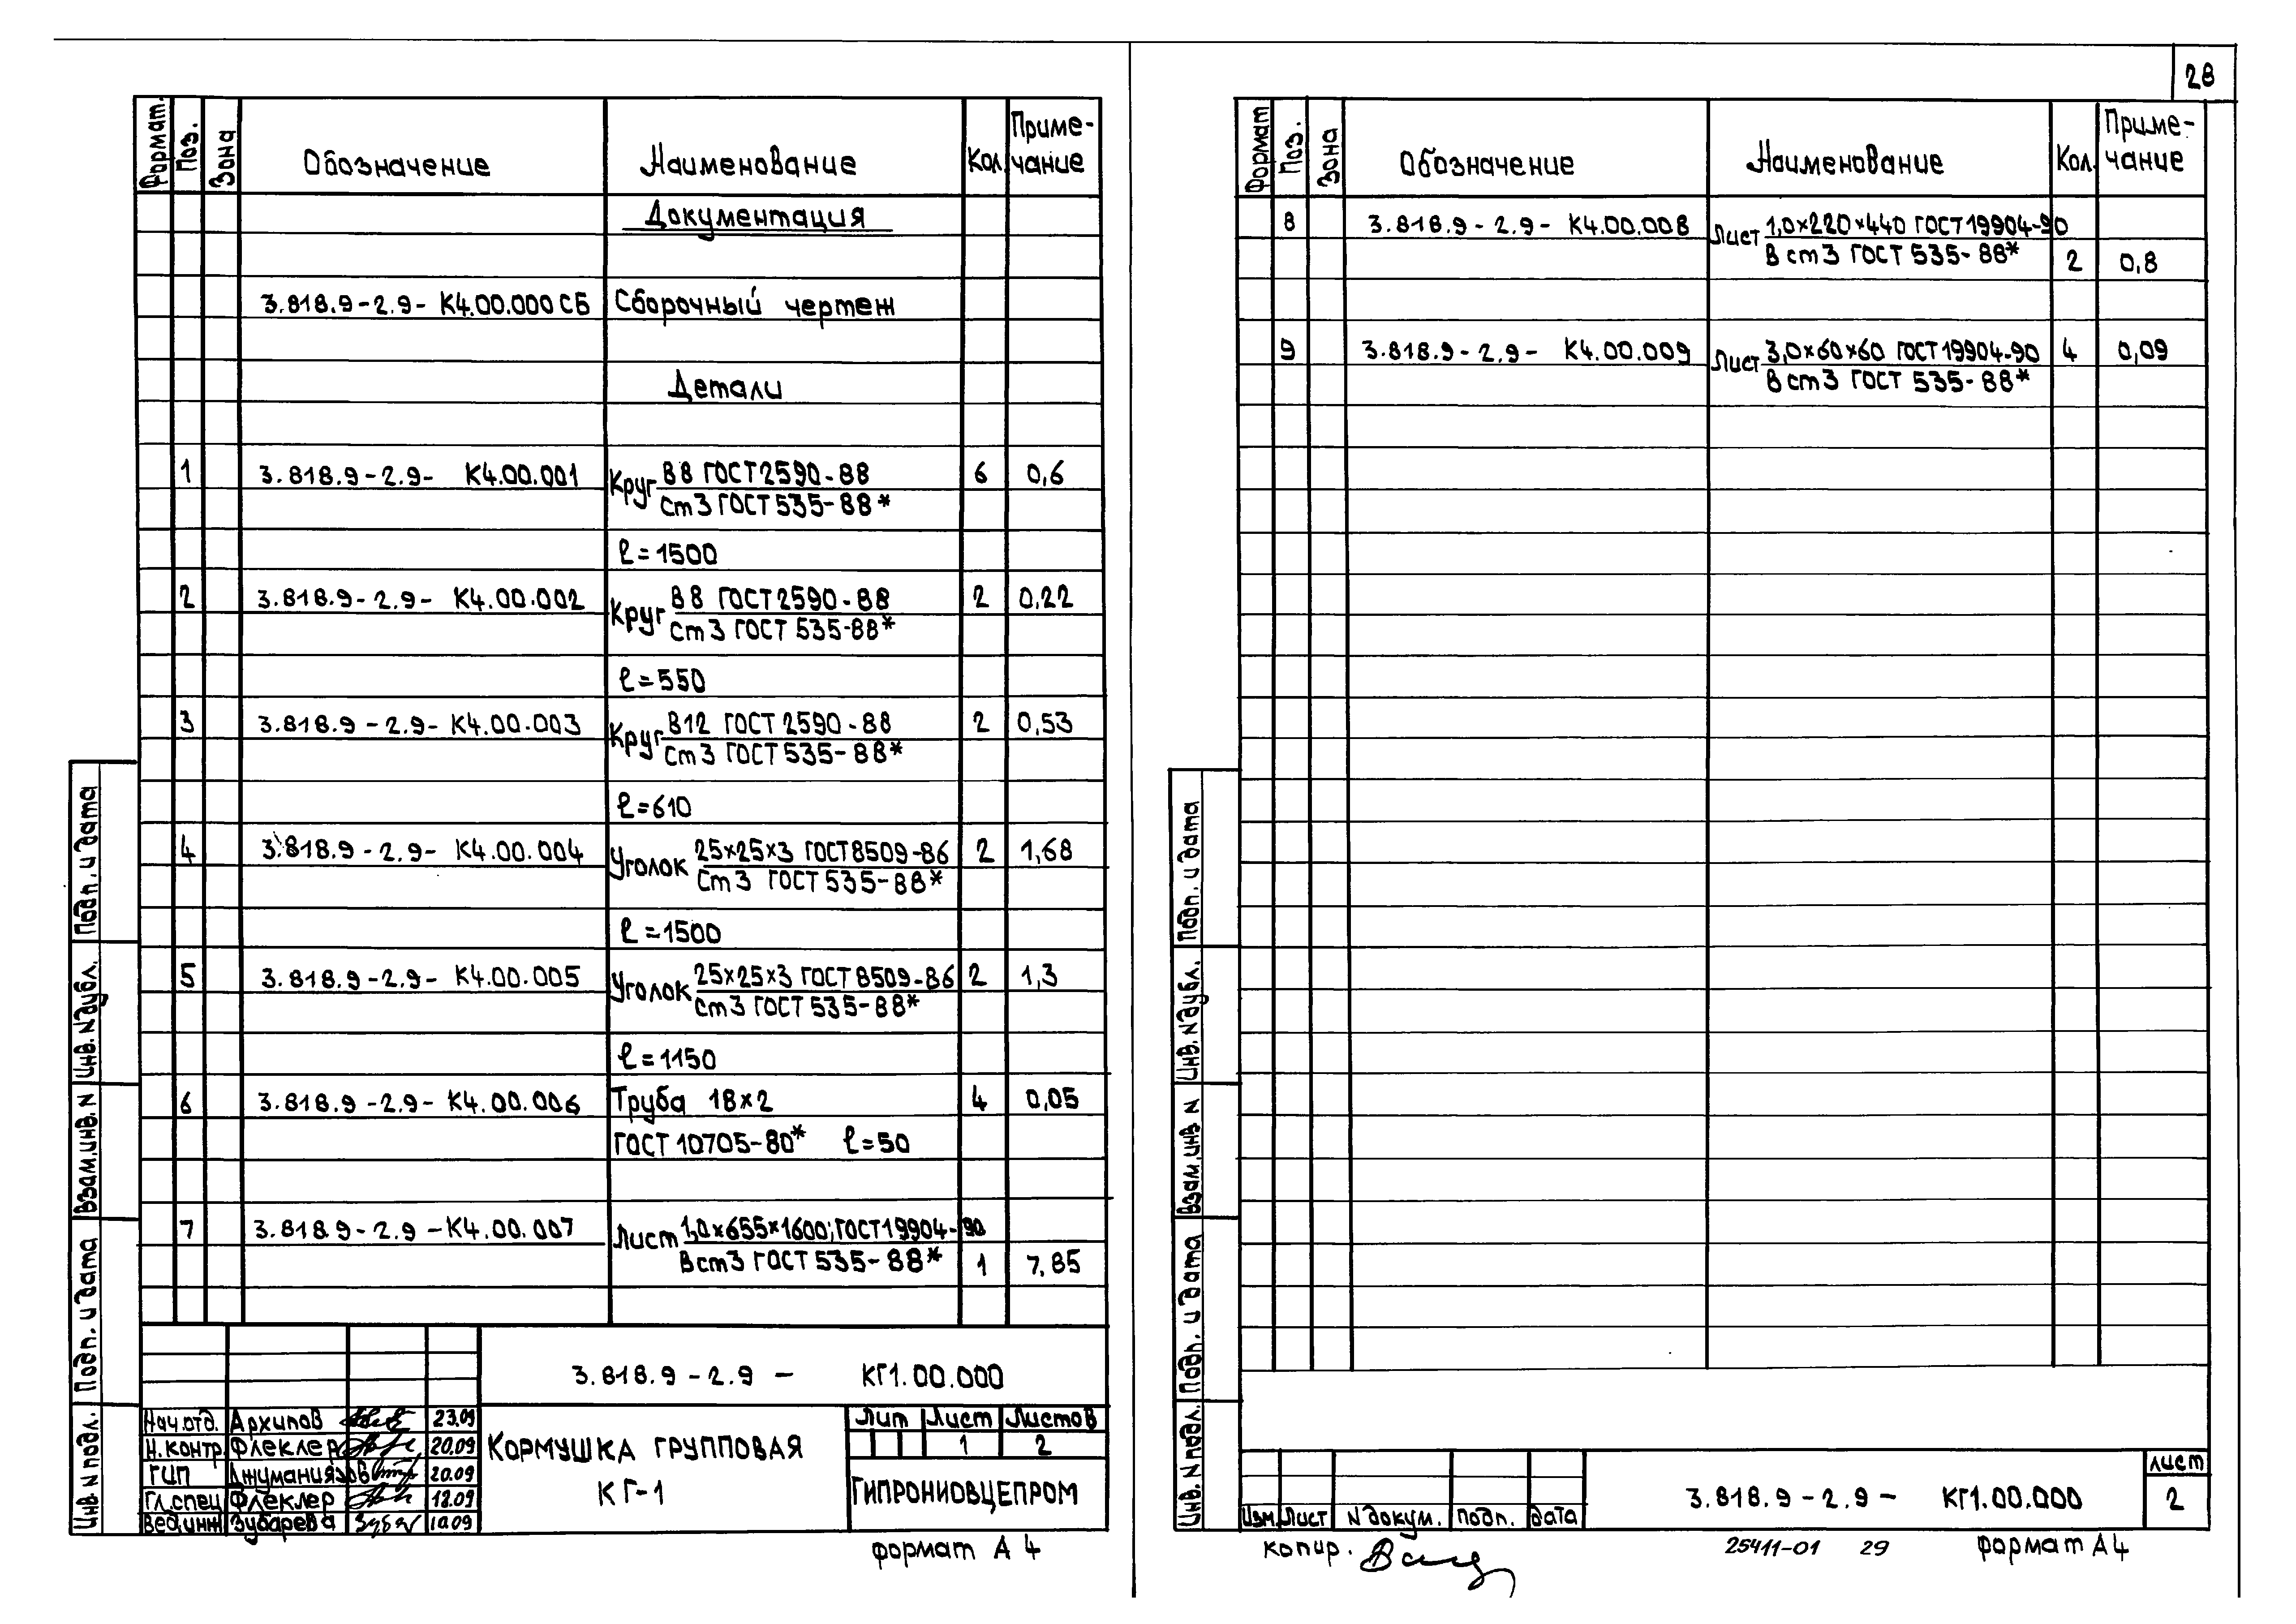 28
Формат. Поз. Зона Обозначение Наименование Кол. Приме-
чание
Документация
3.818.9-2.9- К4.00.000СБ Сборочный чертеж
Детали
1 3.818.9-2.9- К4.00.001 Круг В8 ГОСТ2590-88 6 0,6
Ст3 ГОСТ535-88*
ℓ=1500
2 3.818.9-2.9- К4.00.002 Круг В8 ГОСТ2590-88 2 0,22
Ст3 ГОСТ 535-88*
ℓ=550
3 3.818.9-2.9- К4.00.003 Круг В12 ГОСТ 2590-88 2 0,53
Ст3 ГОСТ535-88*
ℓ=610
4 3.818.9-2.9- К4.00.004 Уголок 25×25×3 ГОСТ8509-86 2 1,68
Ст3 ГОСТ535-88*
ℓ=1500
5 3.818.9-2.9- К4.00.005 Уголок 25×25×3 ГОСТ8509-86 2 1,3
Ст3 ГОСТ535-88*
ℓ=1150
6 3.818.9-2.9- К4.00.006 Труба 18×2 4 0,05
ГОСТ 10705-80* ℓ=50
7 3.818.9-2.9-К4.00.007 Лист 1,0×655×1600; ГОСТ19904-90
Вст3 ГОСТ535-88* 1 7,85
3.818.9-2.9- КГ1.00.000
Нач.отд. Архипов 23.09
Н.контр. Флеклер 20.09
ГИП 20.09
Гл.спец Флеклер 12.09
Вед.инж Зубарева 10.09
КОРМУШКА ГРУППОВАЯ
КГ-1
Лит Лист Листов
1 2
ГИПРОНИОВЦЕПРОМ
формат А4
Подп. и дата
Инв. N дубл.
Взам.инв. N
Подп. и дата
Инв. N подл.
Формат Поз. Зона Обозначение Наименование Кол. Приме-
чание
8 3.818.9-2.9- К4.00.008 Лист 1,0×220×440 ГОСТ19904-90
Вст3 ГОСТ535-88* 2 0,8
9 3.818.9-2.9- К4.00.009 Лист 3,0×60×60 ГОСТ19904-90 4 0,09
Вст3 ГОСТ 535-88*
Подп. и дата
Инв. N дубл.
Взам.инв N
Подп. и дата
Инв. N подл.
Изм Лист N докум. Подп. Дата
3.818.9-2.9- КГ1.00.000
Лист
2
копир.
25411-01 29
формат А4